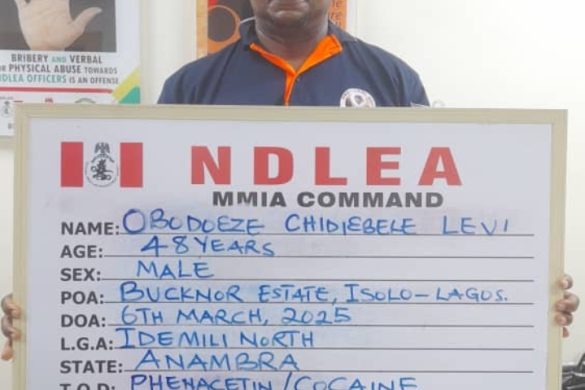 BRIBERY AND VERBAL
OR PHYSICAL ABUSE TOWARDS
NDLEA OFFICERS IS AN OFFENSE
NDLEA
MMIA COMMAND
NAME: OBODOEZE CHIDIEBELE LEVI
AGE: 48 YEARS
SEX: MALE
POA: BUCKNOR ESTATE, ISOLO-LAGOS.
DOA: 6TH MARCH, 2025
L.G.A: IDEMILI NORTH
STATE: ANAMBRA
T.O.D: PHENACETIN/COCAINE